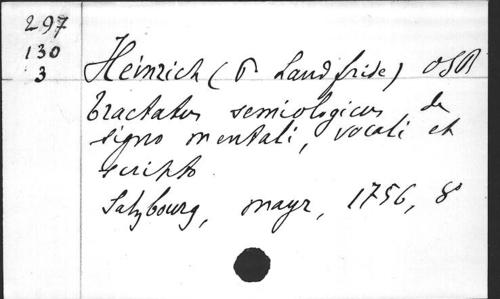 297
130
3
Heinrich (P Landfride) OSB
tractatus semiologicus de
signo mentali, vocali et
scripto
Salzbourg, mayr, 1756, 8°